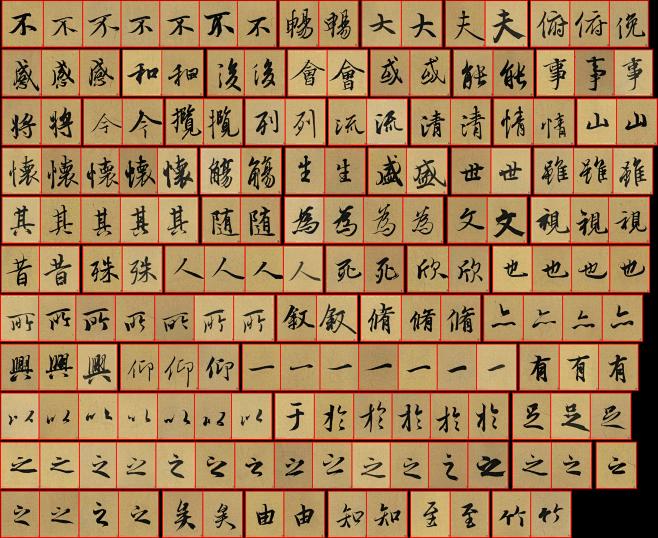 不不不不不不不暢暢大大夫夫俯俯俛
感感感和和後後會會或或能能事事事
將將今今攬攬列列流流清清情情山山
懷懷懷懷懷觴觴生生盛盛世世雖雖雖
其其其其其随随為為為為文文視視視
昔昔殊殊人人人人死死欣欣也也也也
所所所所所所所叙叙脩脩脩亦亦亦亦
興興興仰仰仰一一一一一一一有有有
以以以以以以以于於於於於於足足足
之之之之之之之之之之之之之之之之
之之之之矣矣由由知知至至竹竹